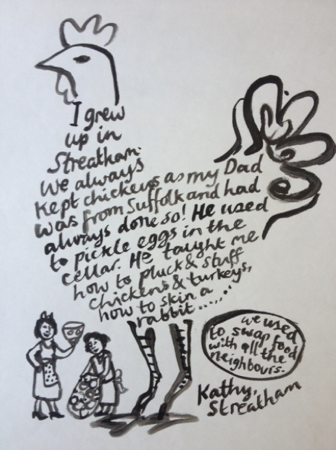 I grew
up in
Streatham.
We always
kept chickens as my Dad
was from Suffolk and had
always done so! He used
to pickle eggs in the
cellar. He taught me
how to pluck & stuff
chickens & turkeys,
how to skin a
rabbit......
we used
to swap food
with all the
neighbours.
Kathy,
Streatham